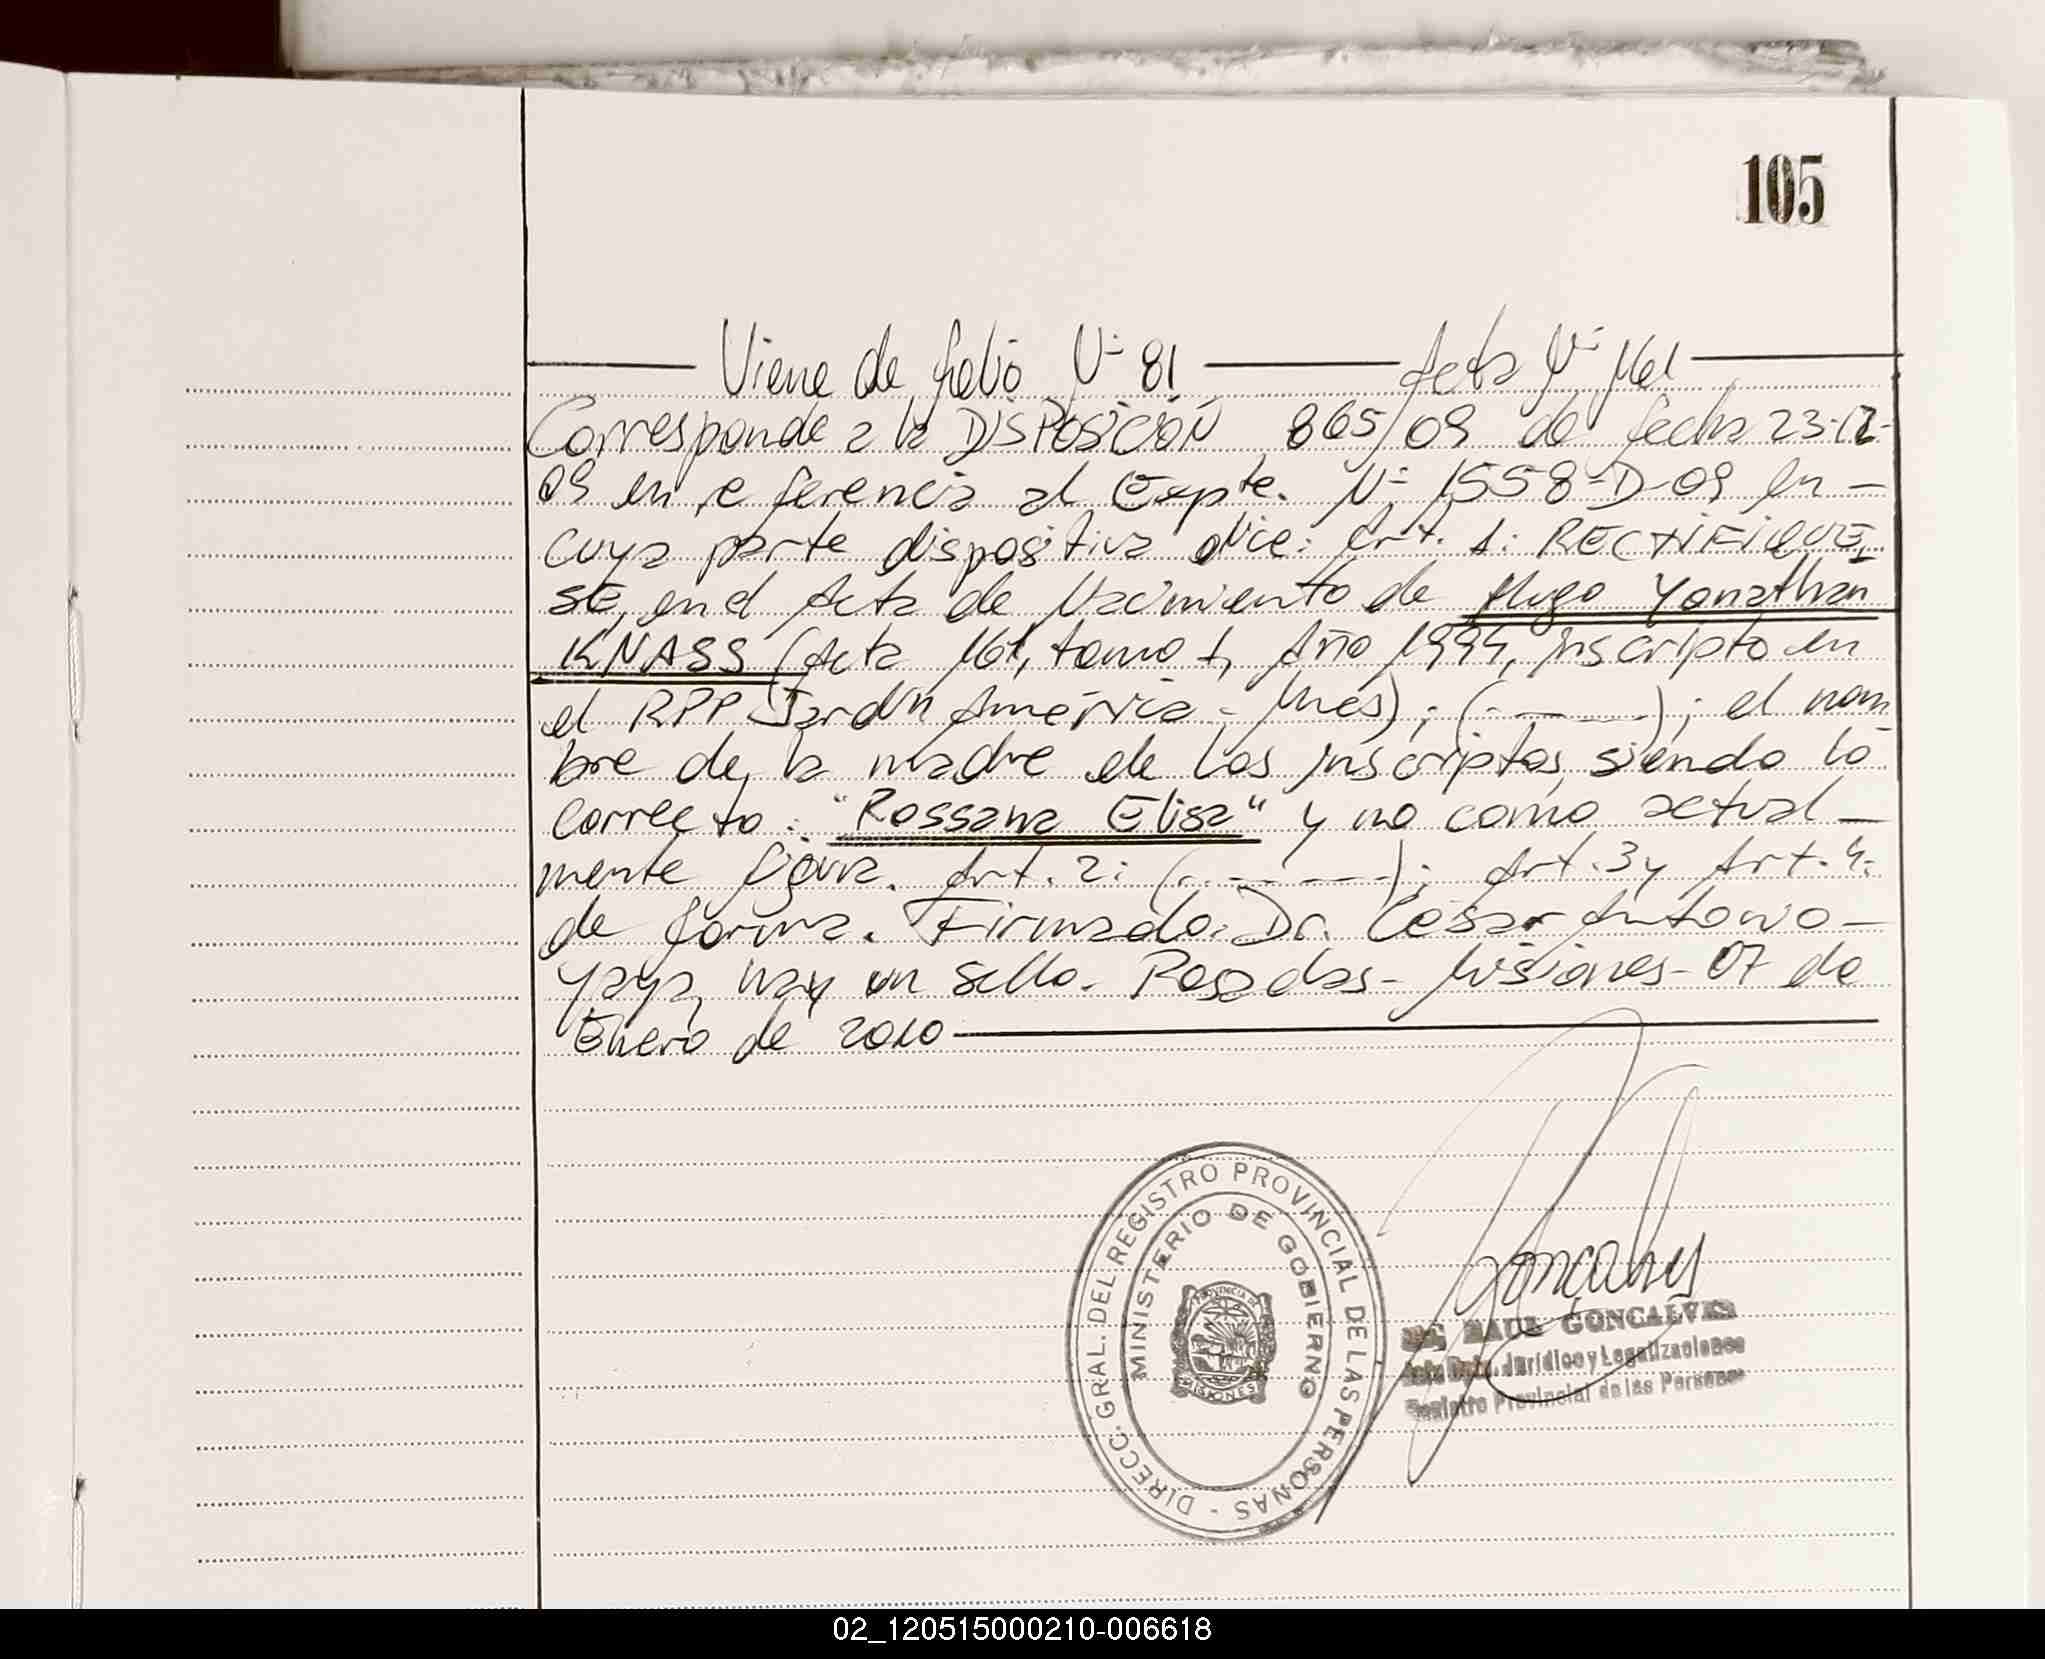 105
Viene de folio Nº 81 Acta Nº 161
Corresponde a la DISPOSICIÓN 865/09 de fecha 23-12-
09 en referencia al Expte. Nº 1558-D-09 en -
cuya parte dispositiva dice: Art. 1: RECTIFIQUE
SE, en el Acta de Nacimiento de Hugo Yonathan
KNASS (Acta 161, tomo 1, Año 1994, inscripto en
el RPP Jardín América - Mnes); (- - - -); el nom
bre de la madre de los inscriptos, siendo lo
correcto: "Rossana Elisa" y no como actual -
mente figura. Art. 2: (- - - -); Art. 3 y Art. 4:
de forma. Firmado: Dr. César Antonio -
Yaya, hay un sello. Posadas - Misiones - 07 de
Enero de 2010
DIRECC. GRAL. DEL REGISTRO PROVINCIAL DE LAS PERSONAS -
MINISTERIO DE GOBIERNO
PROVINCIA DE
MISIONES
Goncalves
RAUL GONCALVES
Jefe Dpto. Jurídico y Legalizaciones
Registro Provincial de las Personas
02_120515000210-006618